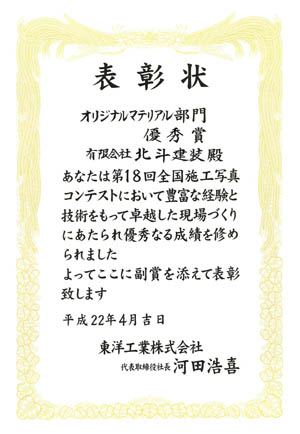 表彰状
オリジナルマテリアル部門
優秀賞
有限会社 北斗建装殿
あなたは第18回全国施工写真
コンテストにおいて豊富な経験と
技術をもって卓越した現場づくり
にあたられ優秀なる成績を修め
られました
よってここに副賞を添えて表彰
致します
平成22年4月吉日
東洋工業株式会社
代表取締役社長 河田浩喜